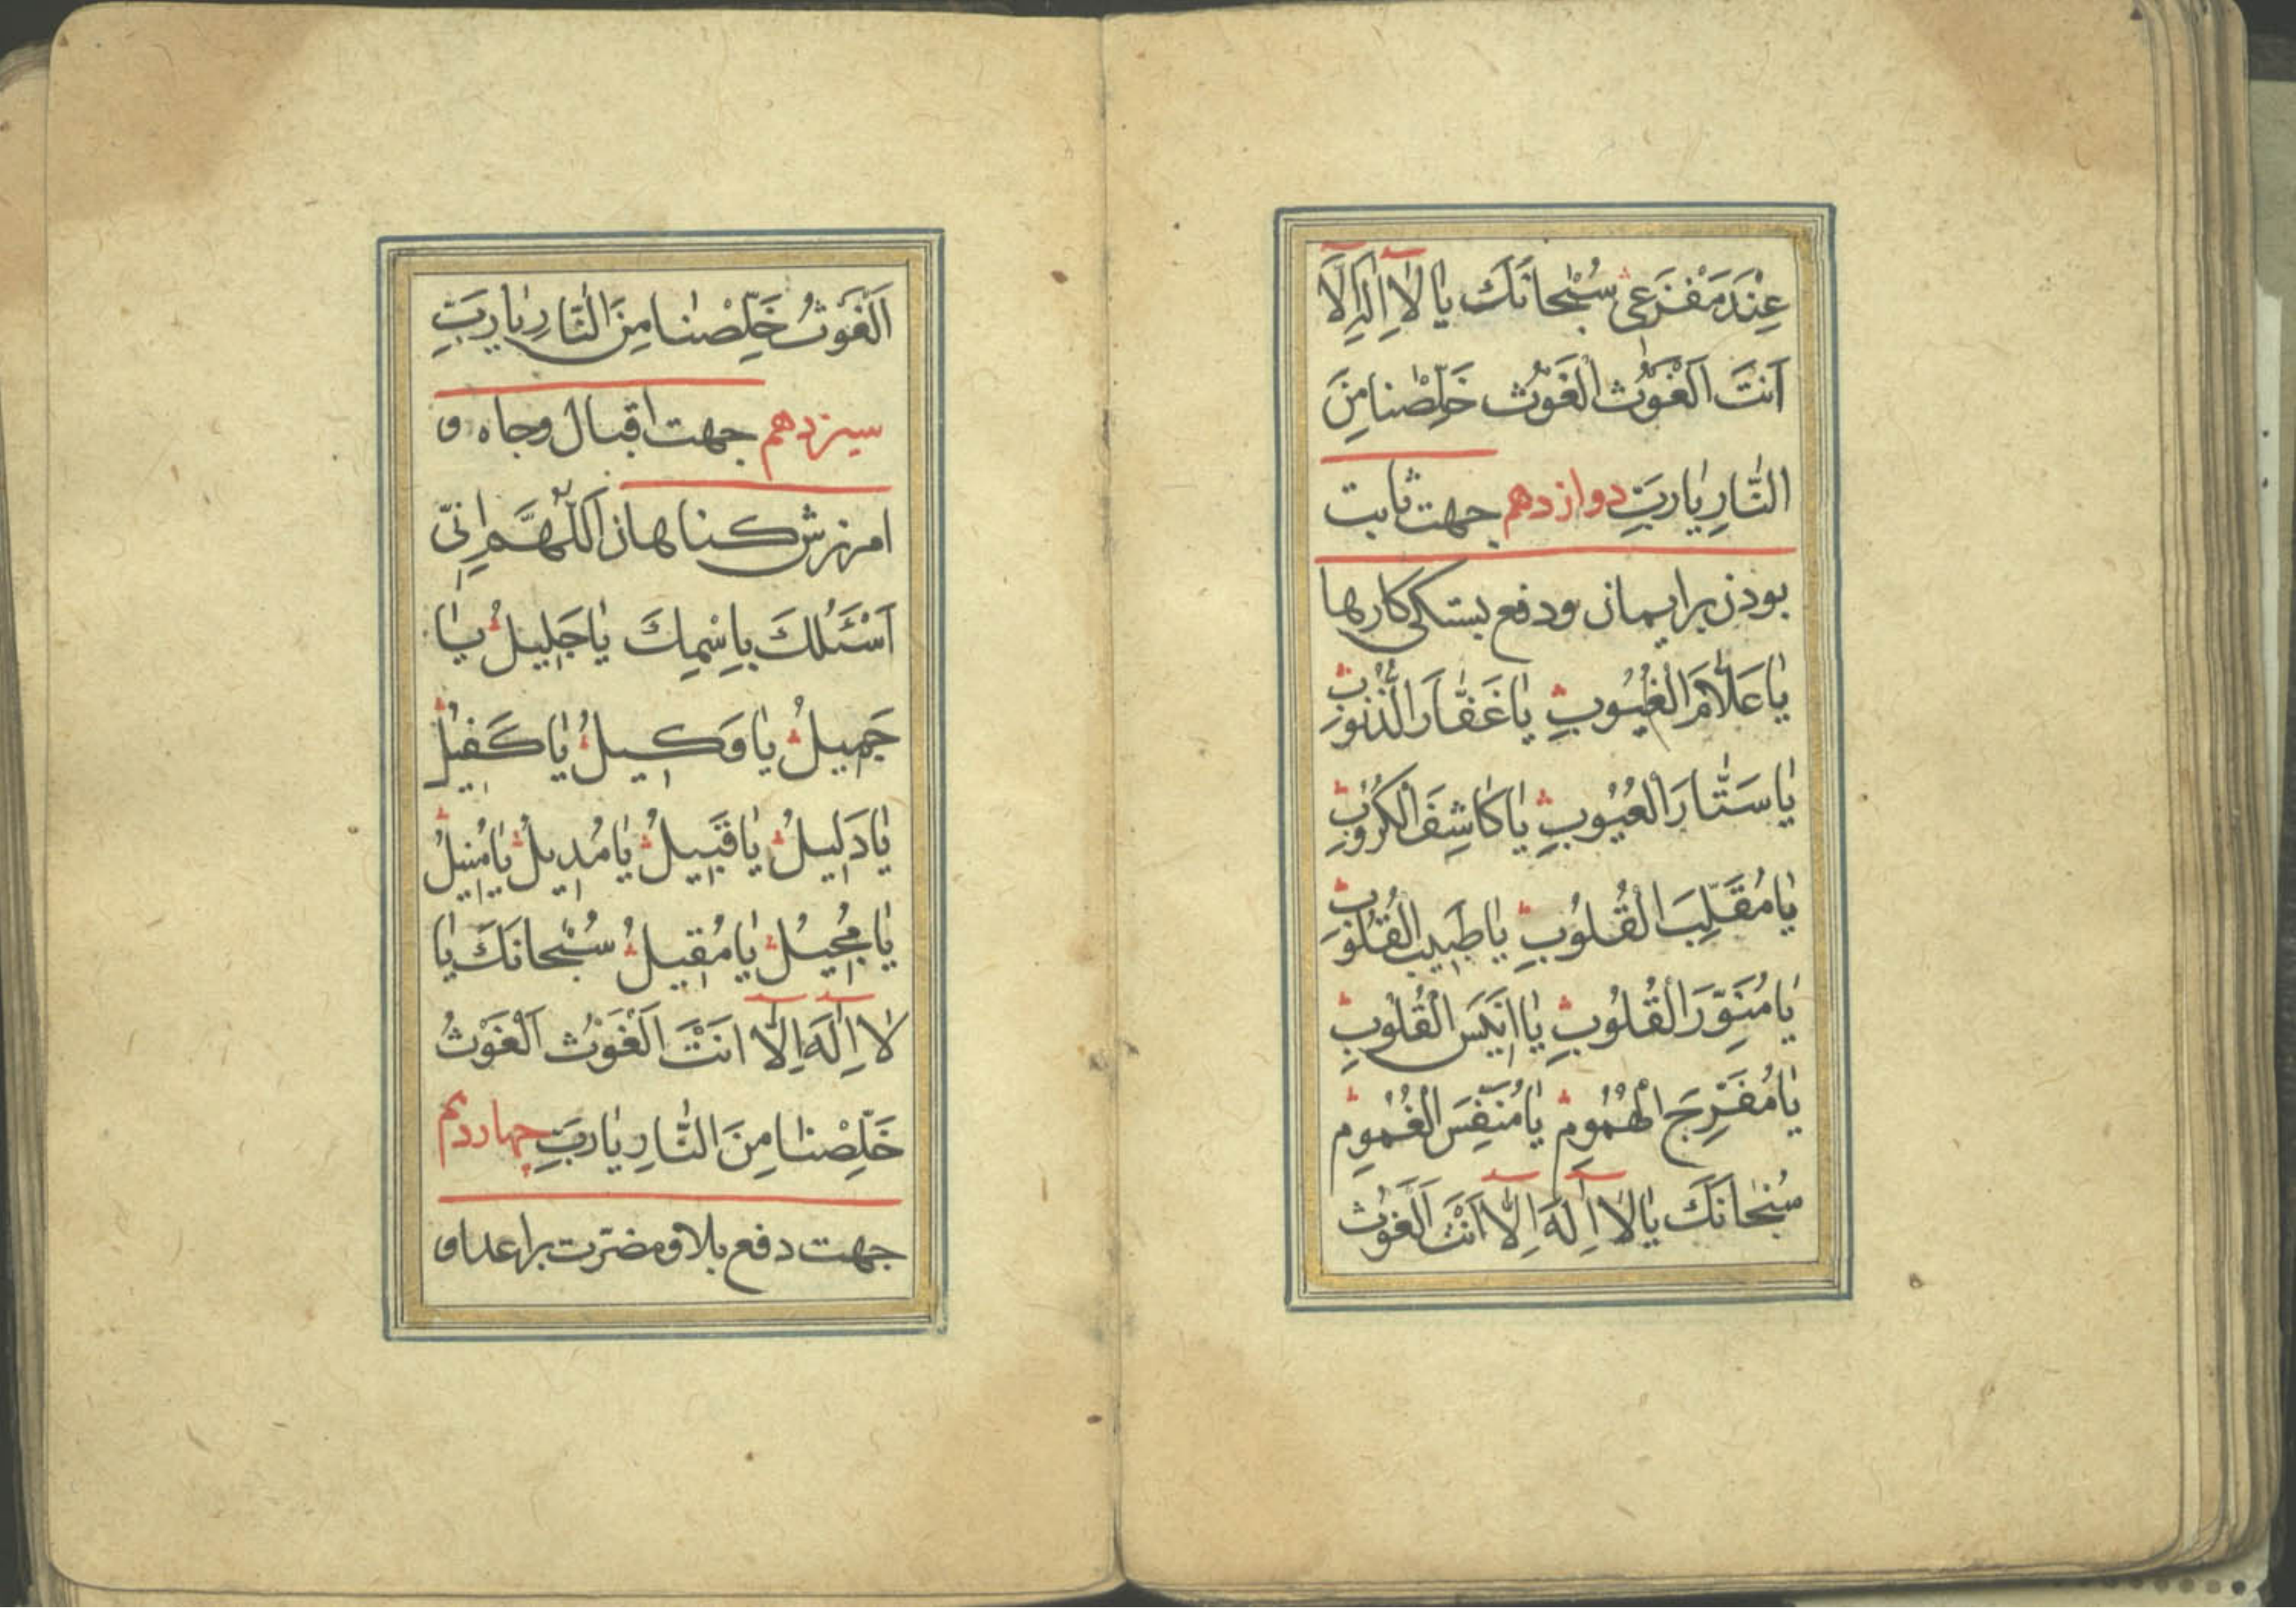 عِنْدَ مَفْزَعی سُبْحانَكَ یا لااِلهَ اِلّا
اَنتَ اَلْغَوْث اَلْغَوْث خَلِّصْنا مِنَ
النّارِ یارَبِّ دوازدهم جهت ثابت
بودن برایمان ودفع بستکی کارها
یاعَلّامَ الْغُیُوبِ یاغَفّارَ الذُّنُوبِ
یاسَتّارَ الْعُیُوبِ یاکاشِفَ الْکُرُوبِ
یامُقَلِّبَ الْقُلُوبِ یاطَبیبَ الْقُلُوبِ
یامُنَوِّرَ الْقُلُوبِ یااَنیسَ الْقُلُوبِ
یامُفَرِّجَ الْهُمُومِ یامُنَفِّسَ الْغُمُومِ
سُبْحانَكَ یا لااِلهَ اِلّا اَنْتَ اَلْغَوْث
اَلْغَوْثُ خَلِّصْنا مِنَ النّارِ یارَبِّ
سیزدهم جهت اقبال وجاه و
امرزش کناهان اَللّهُمَّ اِنّی
اَسْئَلُكَ بِاسْمِكَ یاجَلیلُ یا
جَمیلُ یاوَکیلُ یاکَفیلُ
یادَلیلُ یاقَبیلُ یامُدیلُ یامُنیلُ
یامُحیلُ یامُقیلُ سُبْحانَكَ یا
لااِلهَ اِلّا اَنْتَ اَلْغَوْث اَلْغَوْثُ
خَلِّصْنا مِنَ النّارِ یارَبِّ چهاردهم
جهت دفع بلا ومضرّت براعدا و